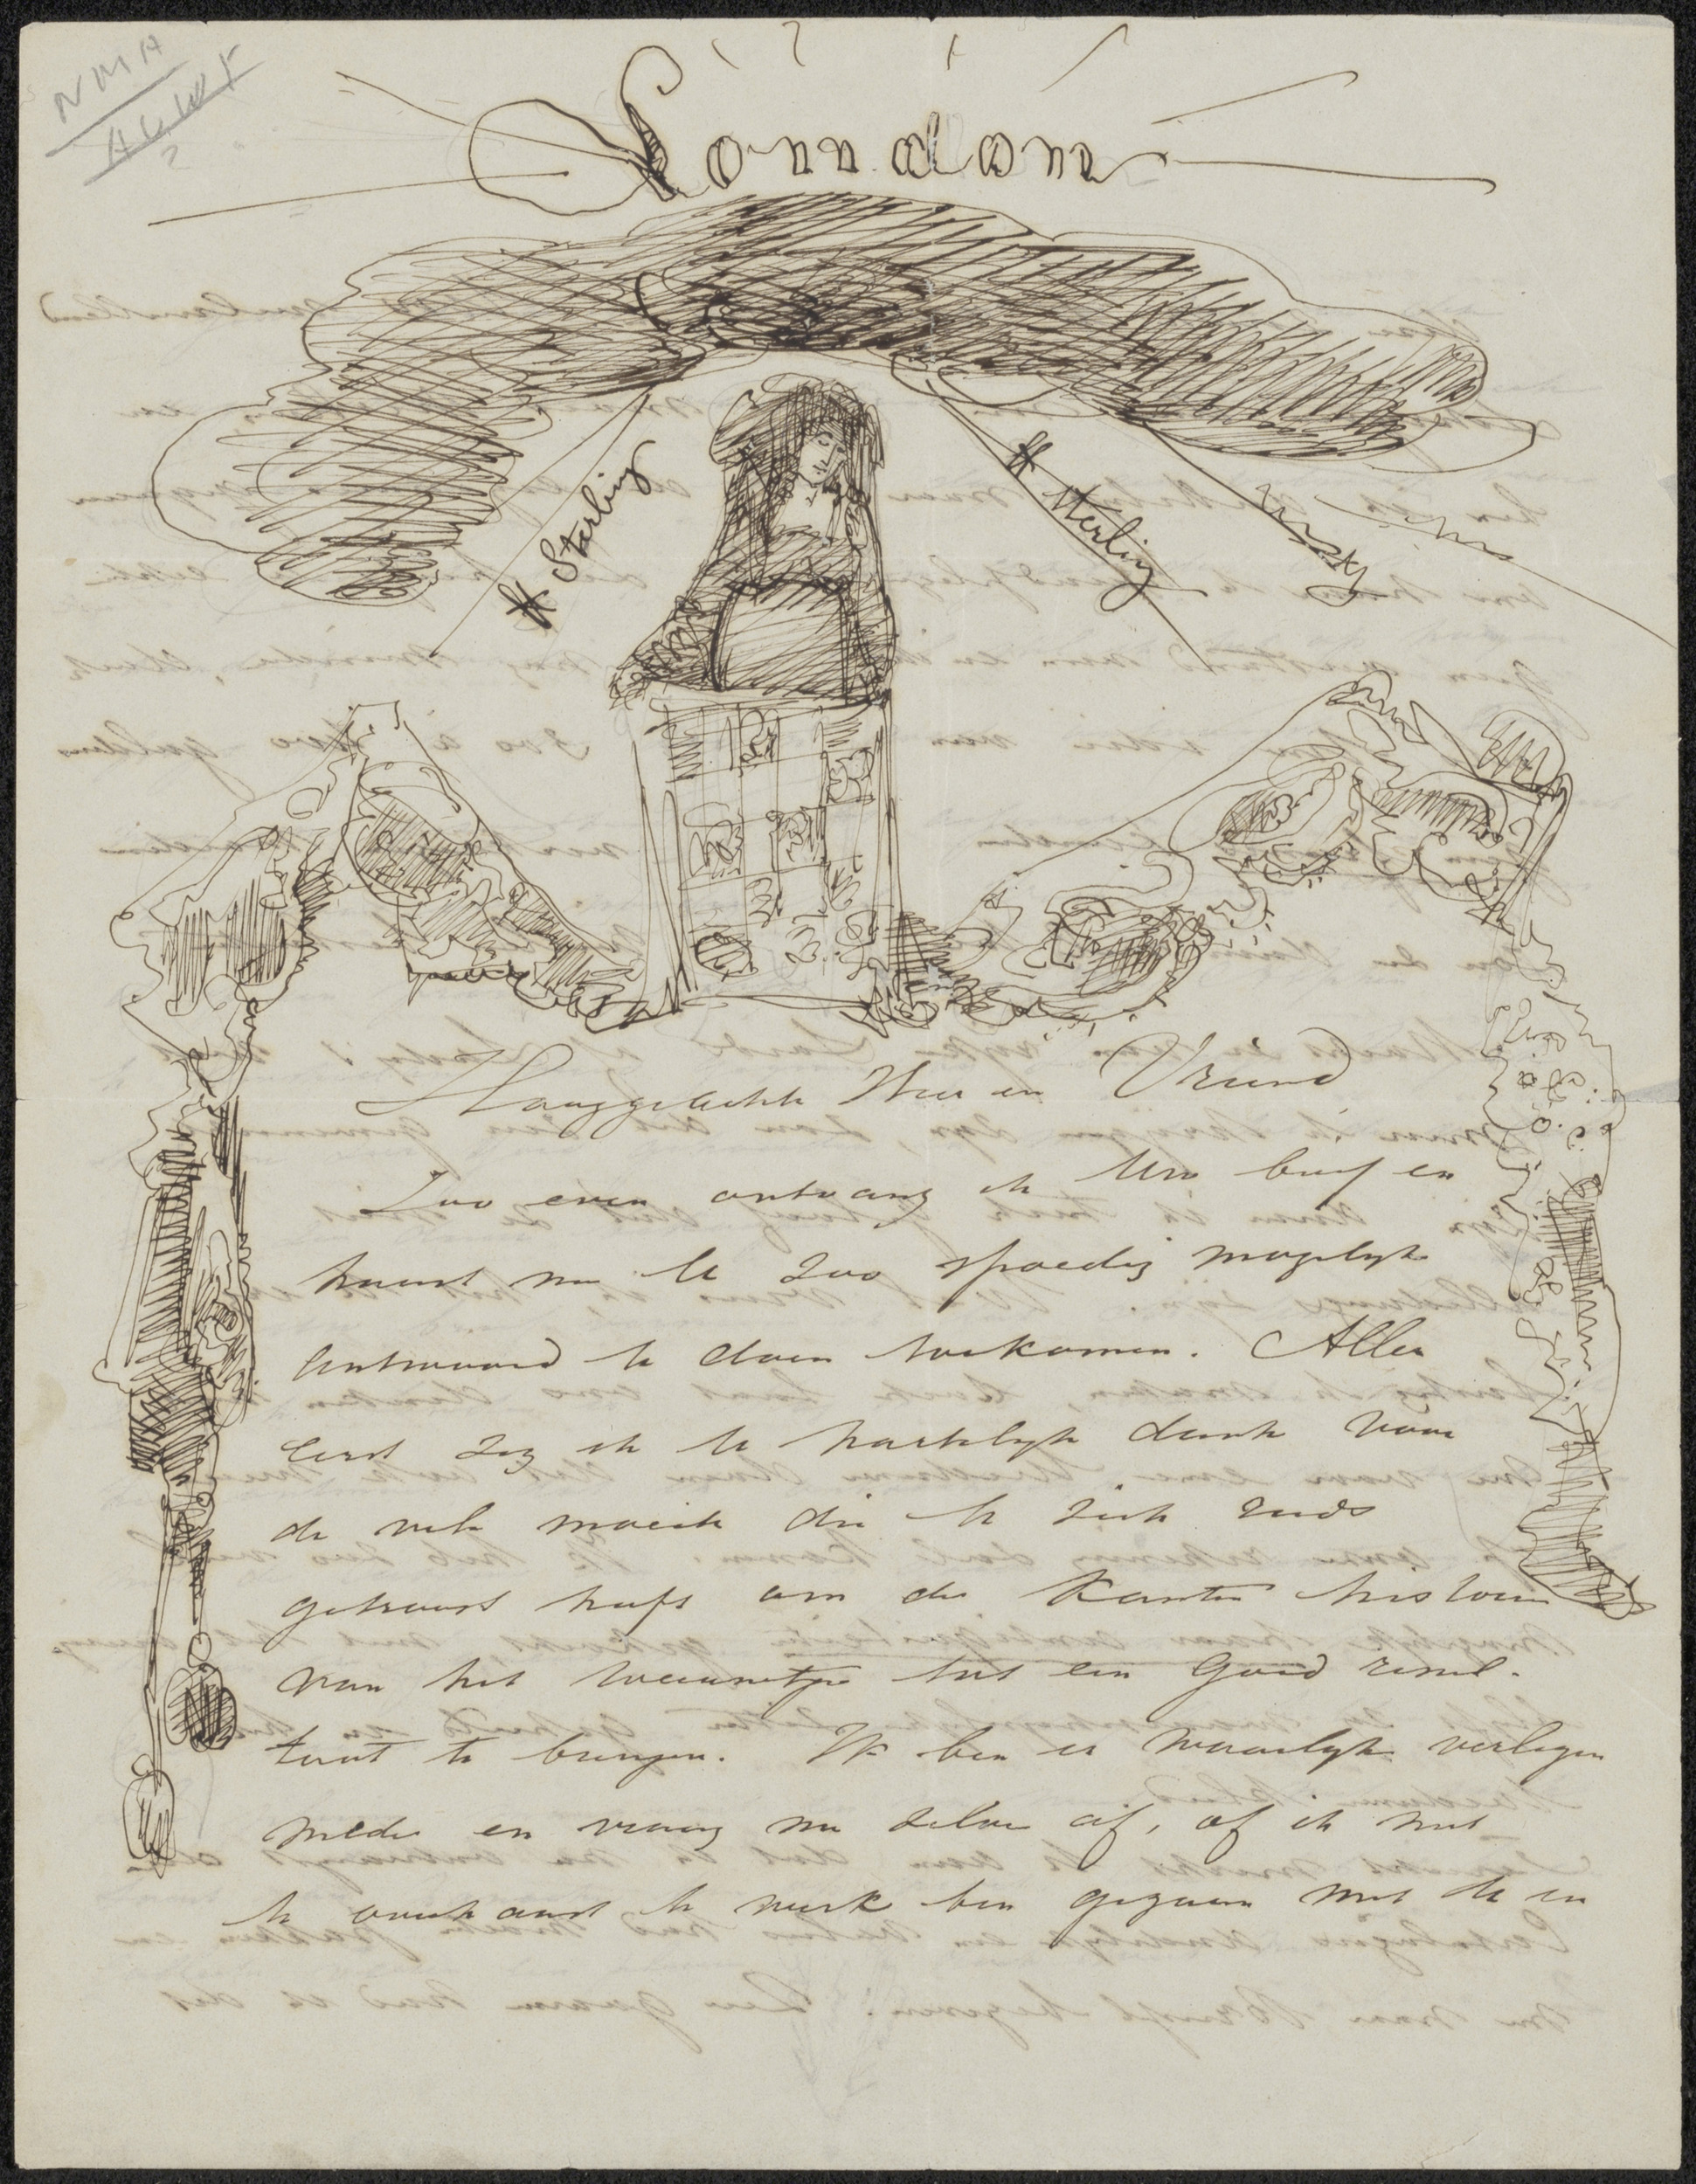 NMA
London
£ Sterling
£ Sterling
Hooggeachte Heer en Vriend
Zoo even ontvang ik Uw brief en
haast me U zoo spoedig mogelyk
antwoord te doen toekomen. Aller
eerst zeg ik U hartelyk dank voor
de vele moeite die U zich reeds
getroost heeft om de Kanten historie
van het weeuwtje tot een goed resul-
taat te brengen. Ik ben er waarlyk verlegen
mede en vraag me zelve af, of ik niet
te overhaast te werk ben gegaan met U en